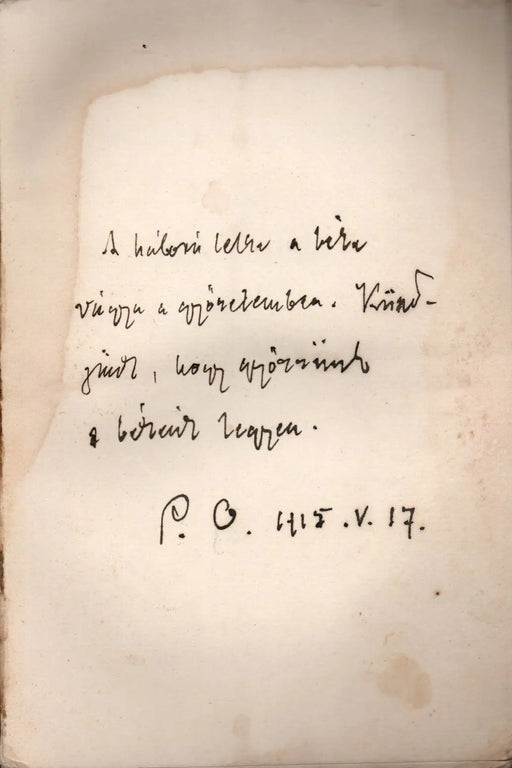 A háború lelke a béke
vágya a győzelemben. Küzd-
jünk, hogy győzzünk
s békénk legyen.
P. O. 1915. V. 17.